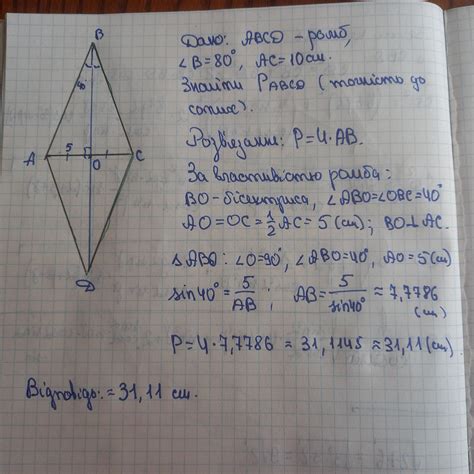 B
Дано: ABCD – ромб,
∠B=80°, AC=10см.
Знайти P ABCD (точністю до
сотих).
40
Розв'язання: P=4·AB.
A 5 O C
За властивістю ромба:
BO-бісектриса, ∠ABO=∠OBC=40°
AO=OC=1/2 AC=5(см); BO⊥AC.
D
△ABO: ∠O=90°, ∠ABO=40°, AO=5(см)
sin40°=5/AB; AB=5/sin40° ≈ 7,7786
(см)
P=4·7,7786 ≈ 31,1145 ≈ 31,11(см).
Відповідь: ≈31,11 см.